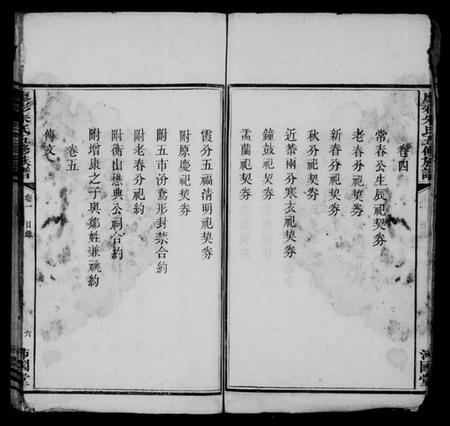 卷四
常春公生辰祀契券
老春分祀契券
新春分祀契券
秋分祀契券
近菴兩分寒衣祀契券
鐘鼓祀契券
盂蘭祀契券
霞分五福清明祀契券
附原慶祀契券
附五市汾鴛形封禁合約
附老春分祀約
附衡山懋典公祠合約
附增康之子與鄒姓兼祧約
卷五
傳文
卷一 目錄
六